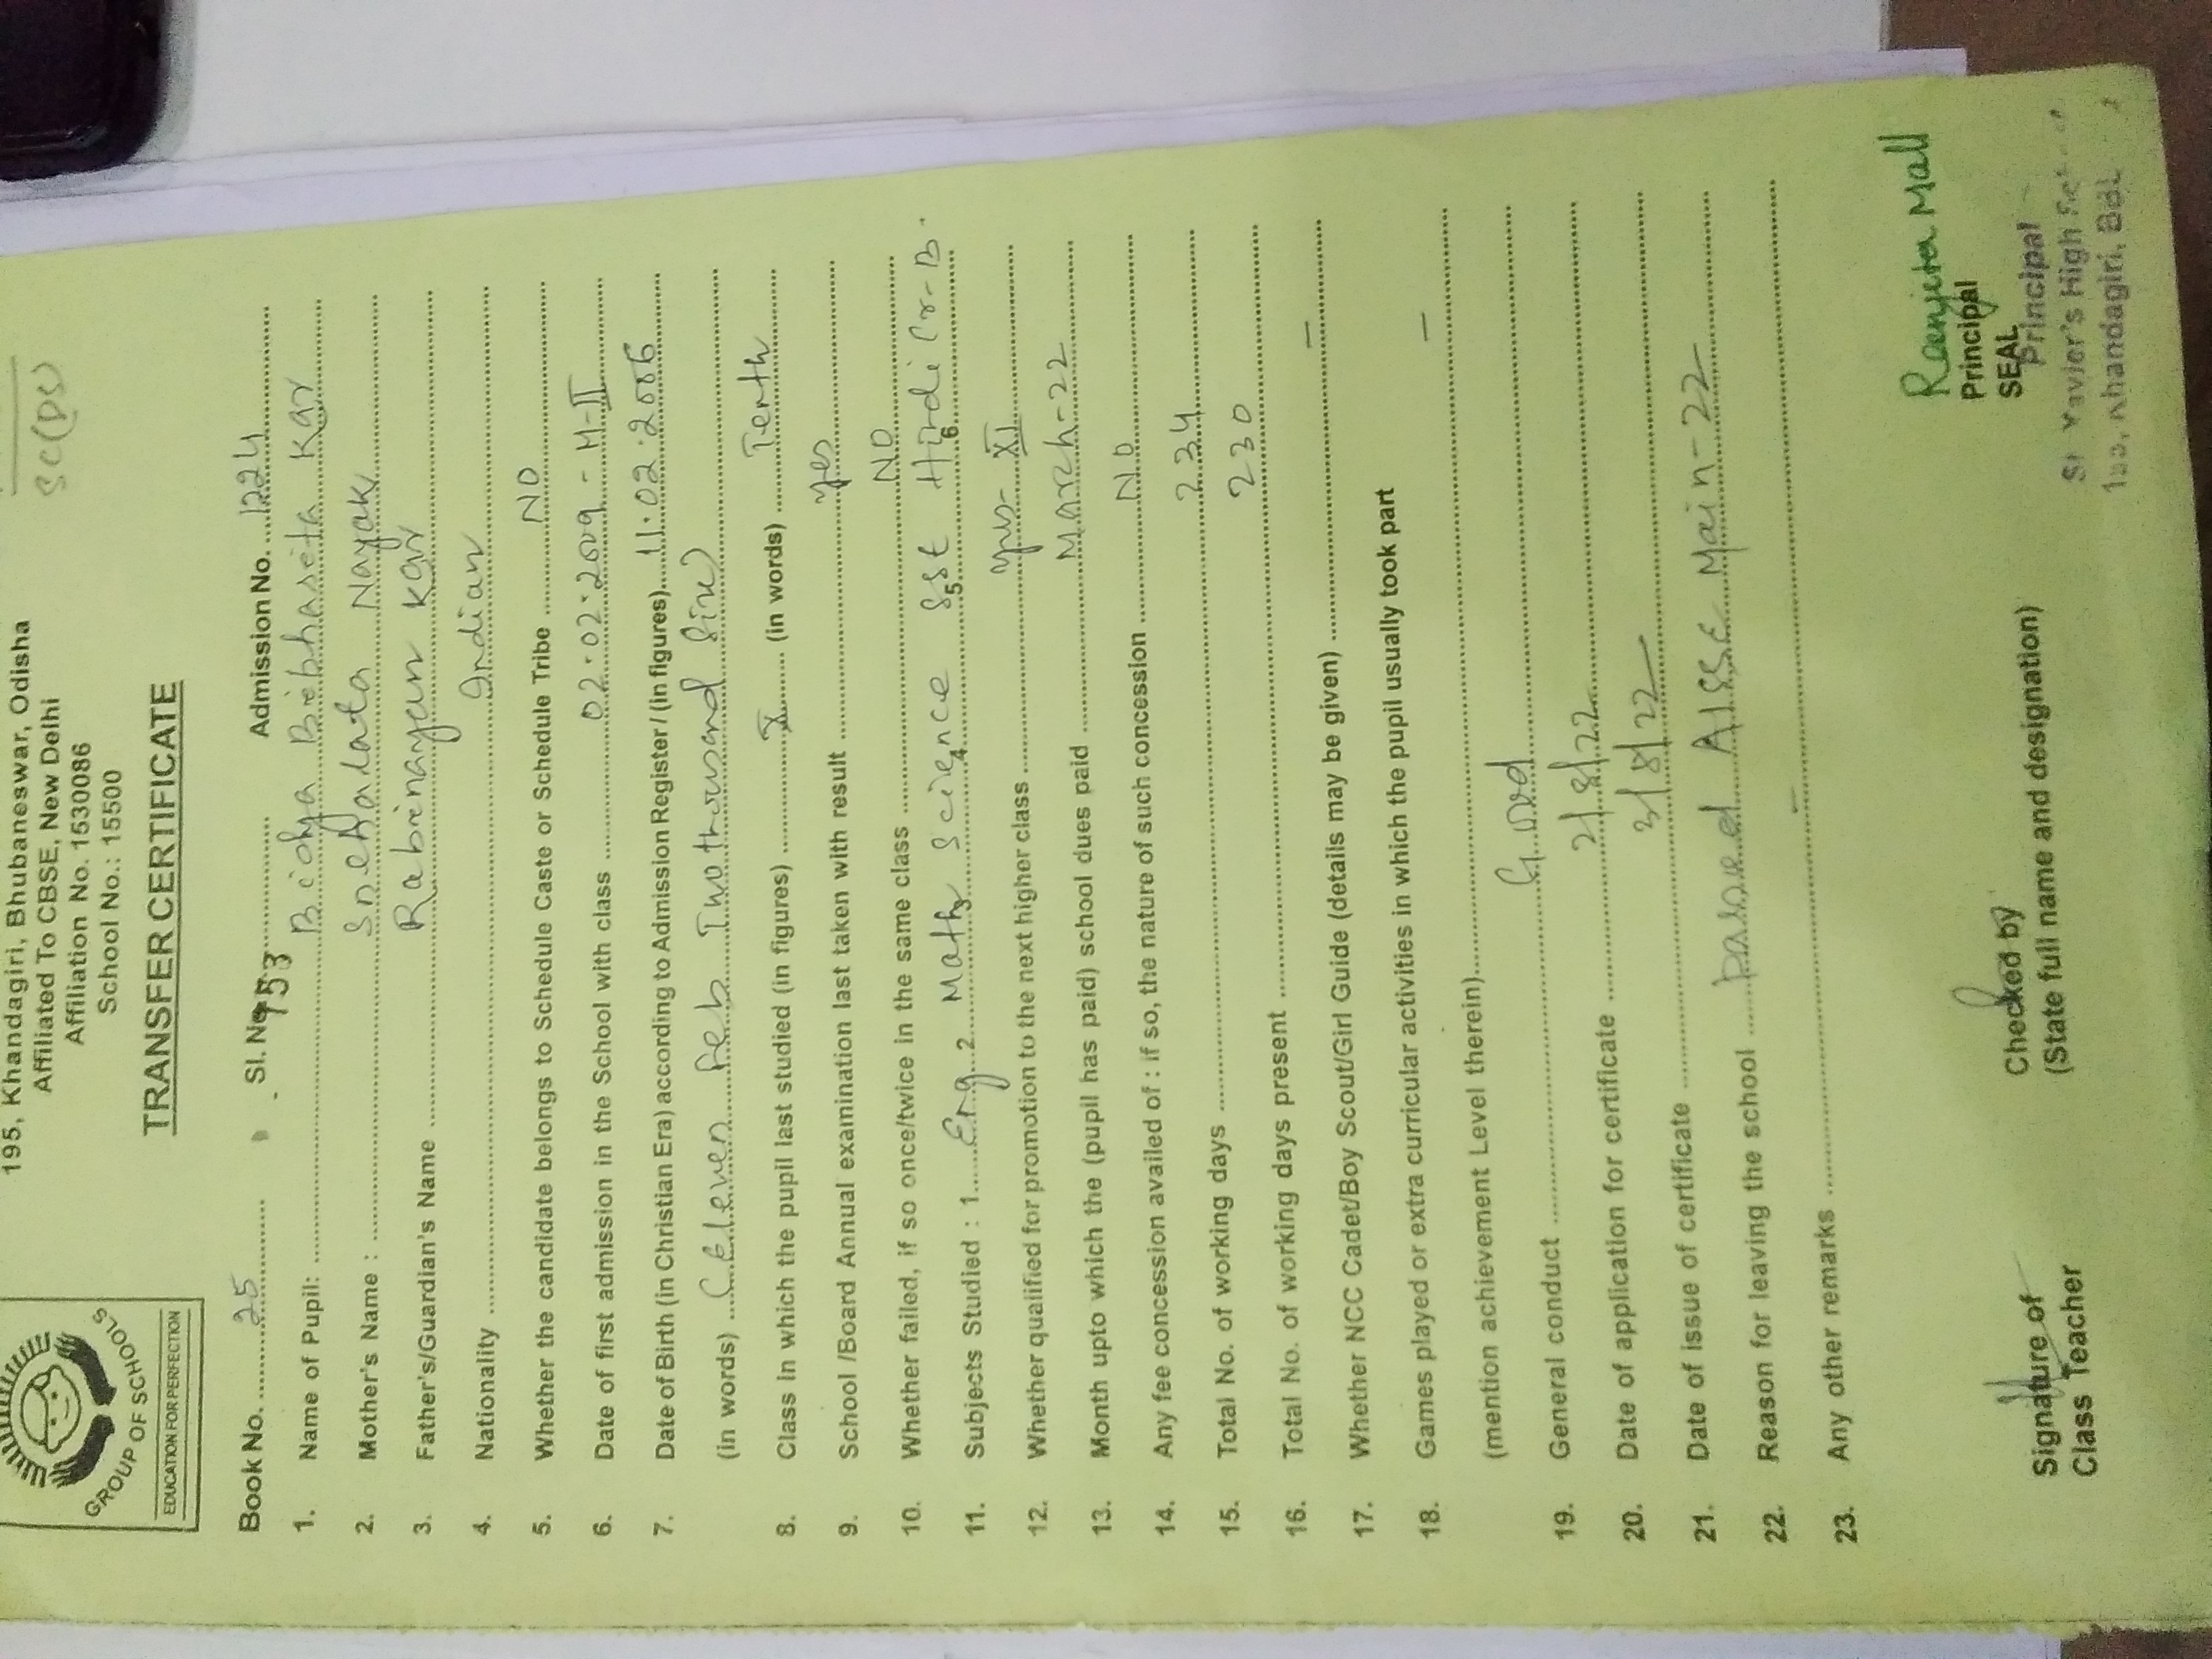 SC(DS)
195, Khandagiri, Bhubaneswar, Odisha
Affiliated To CBSE, New Delhi
Affiliation No. 1530086
School No.: 15500
GROUP OF SCHOOLS
EDUCATION FOR PERFECTION
TRANSFER CERTIFICATE
Book No. 25 Sl. No. 153 Admission No. 1224
1. Name of Pupil: Bidya Bibhasita Kar
2. Mother's Name : Snehalata Nayak
3. Father's/Guardian's Name Rabinayan Kar
4. Nationality Indian
5. Whether the candidate belongs to Schedule Caste or Schedule Tribe NO
6. Date of first admission in the School with class 02.02.2009 - M-II
7. Date of Birth (in Christian Era) according to Admission Register / (in figures) 11.02.2006
(in words) (Eleven Feb Two thousand Six)
8. Class in which the pupil last studied (in figures) X (in words) Tenth
9. School /Board Annual examination last taken with result yes
10. Whether failed, if so once/twice in the same class NO
11. Subjects Studied : 1 Eng 2 Math 3 Science 4 Sst 5 Hindi Cr-B. 6
12. Whether qualified for promotion to the next higher class yes - XI
13. Month upto which the (pupil has paid) school dues paid March-22
14. Any fee concession availed of : if so, the nature of such concession NO
15. Total No. of working days 234
16. Total No. of working days present 230
17. Whether NCC Cadet/Boy Scout/Girl Guide (details may be given) –
18. Games played or extra curricular activities in which the pupil usually took part –
(mention achievement Level therein)
19. General conduct Good
20. Date of application for certificate 2/8/22
21. Date of issue of certificate 3/8/22
22. Reason for leaving the school passed AISSE Main-22
23. Any other remarks –
Ranjita Mall
Signature of
Class Teacher
Checked by
(State full name and designation)
Principal
SEAL
Principal
St Xavier's High
Khandagiri, BBL